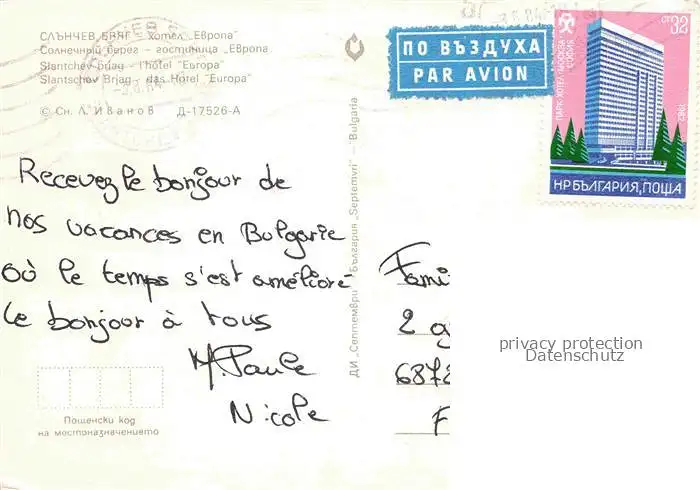 СЛЪНЧЕВ БРЯГ – хотел „Европа"
Солнечный берег – гостиница „Европа
Slantchev Briag – l'hôtel "Europa"
Slantschev Brjag – das Hotel "Europa"
© Сн. Л. Иванов Д-17526-А
ПО ВЪЗДУХА
PAR AVION
ст 32
ПАРК-ХОТЕЛ „МОСКВА" СОФИЯ
1982
НР БЪЛГАРИЯ, ПОЩА
3.8.84
Recevez le bonjour de
nos vacances en Bulgarie
où le temps s'est amélioré
le bonjour à tous
M. Paule
Nicole
ДИ „Септември" – България „Septemvri" – Bulgaria
Fami
2
6872
F
privacy protection
Datenschutz
Пощенски код
на местоназначението